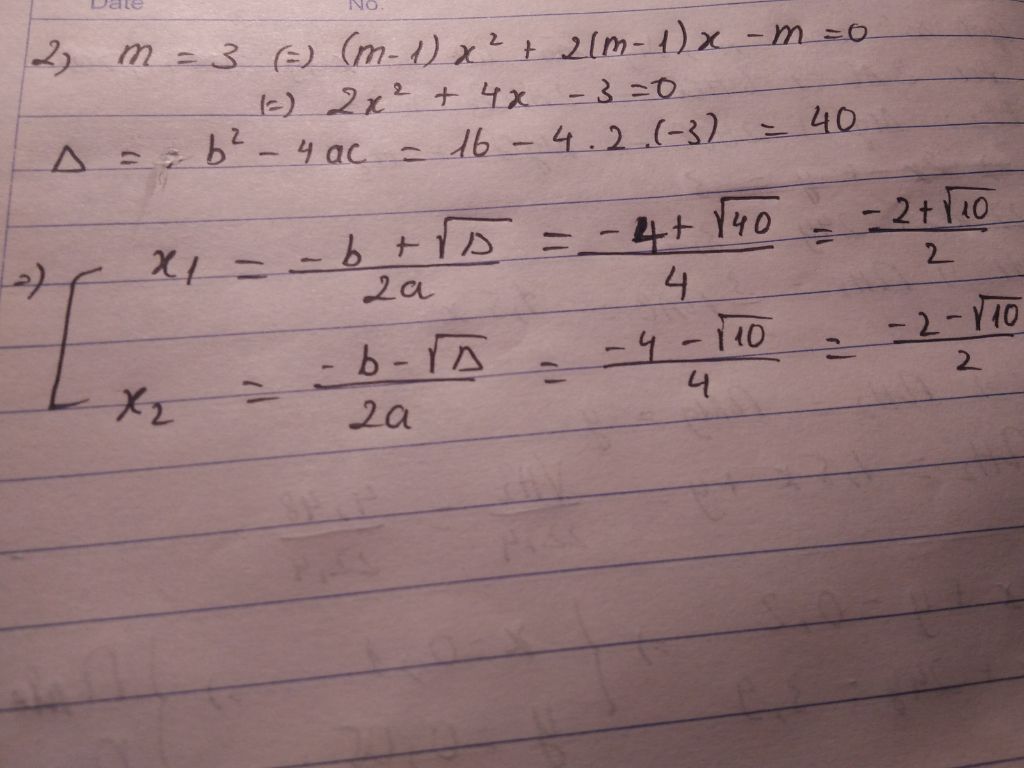 Date No.
2) m = 3 (=) (m-1)x² + 2(m-1)x - m = 0
(=) 2x² + 4x - 3 = 0
Δ = b² - 4ac = 16 - 4.2.(-3) = 40
=) [ x₁ = (-b + √Δ)/(2a) = (-4 + √40)/4 = (-2 + √10)/2
x₂ = (-b - √Δ)/(2a) = (-4 - √10)/4 = (-2 - √10)/2